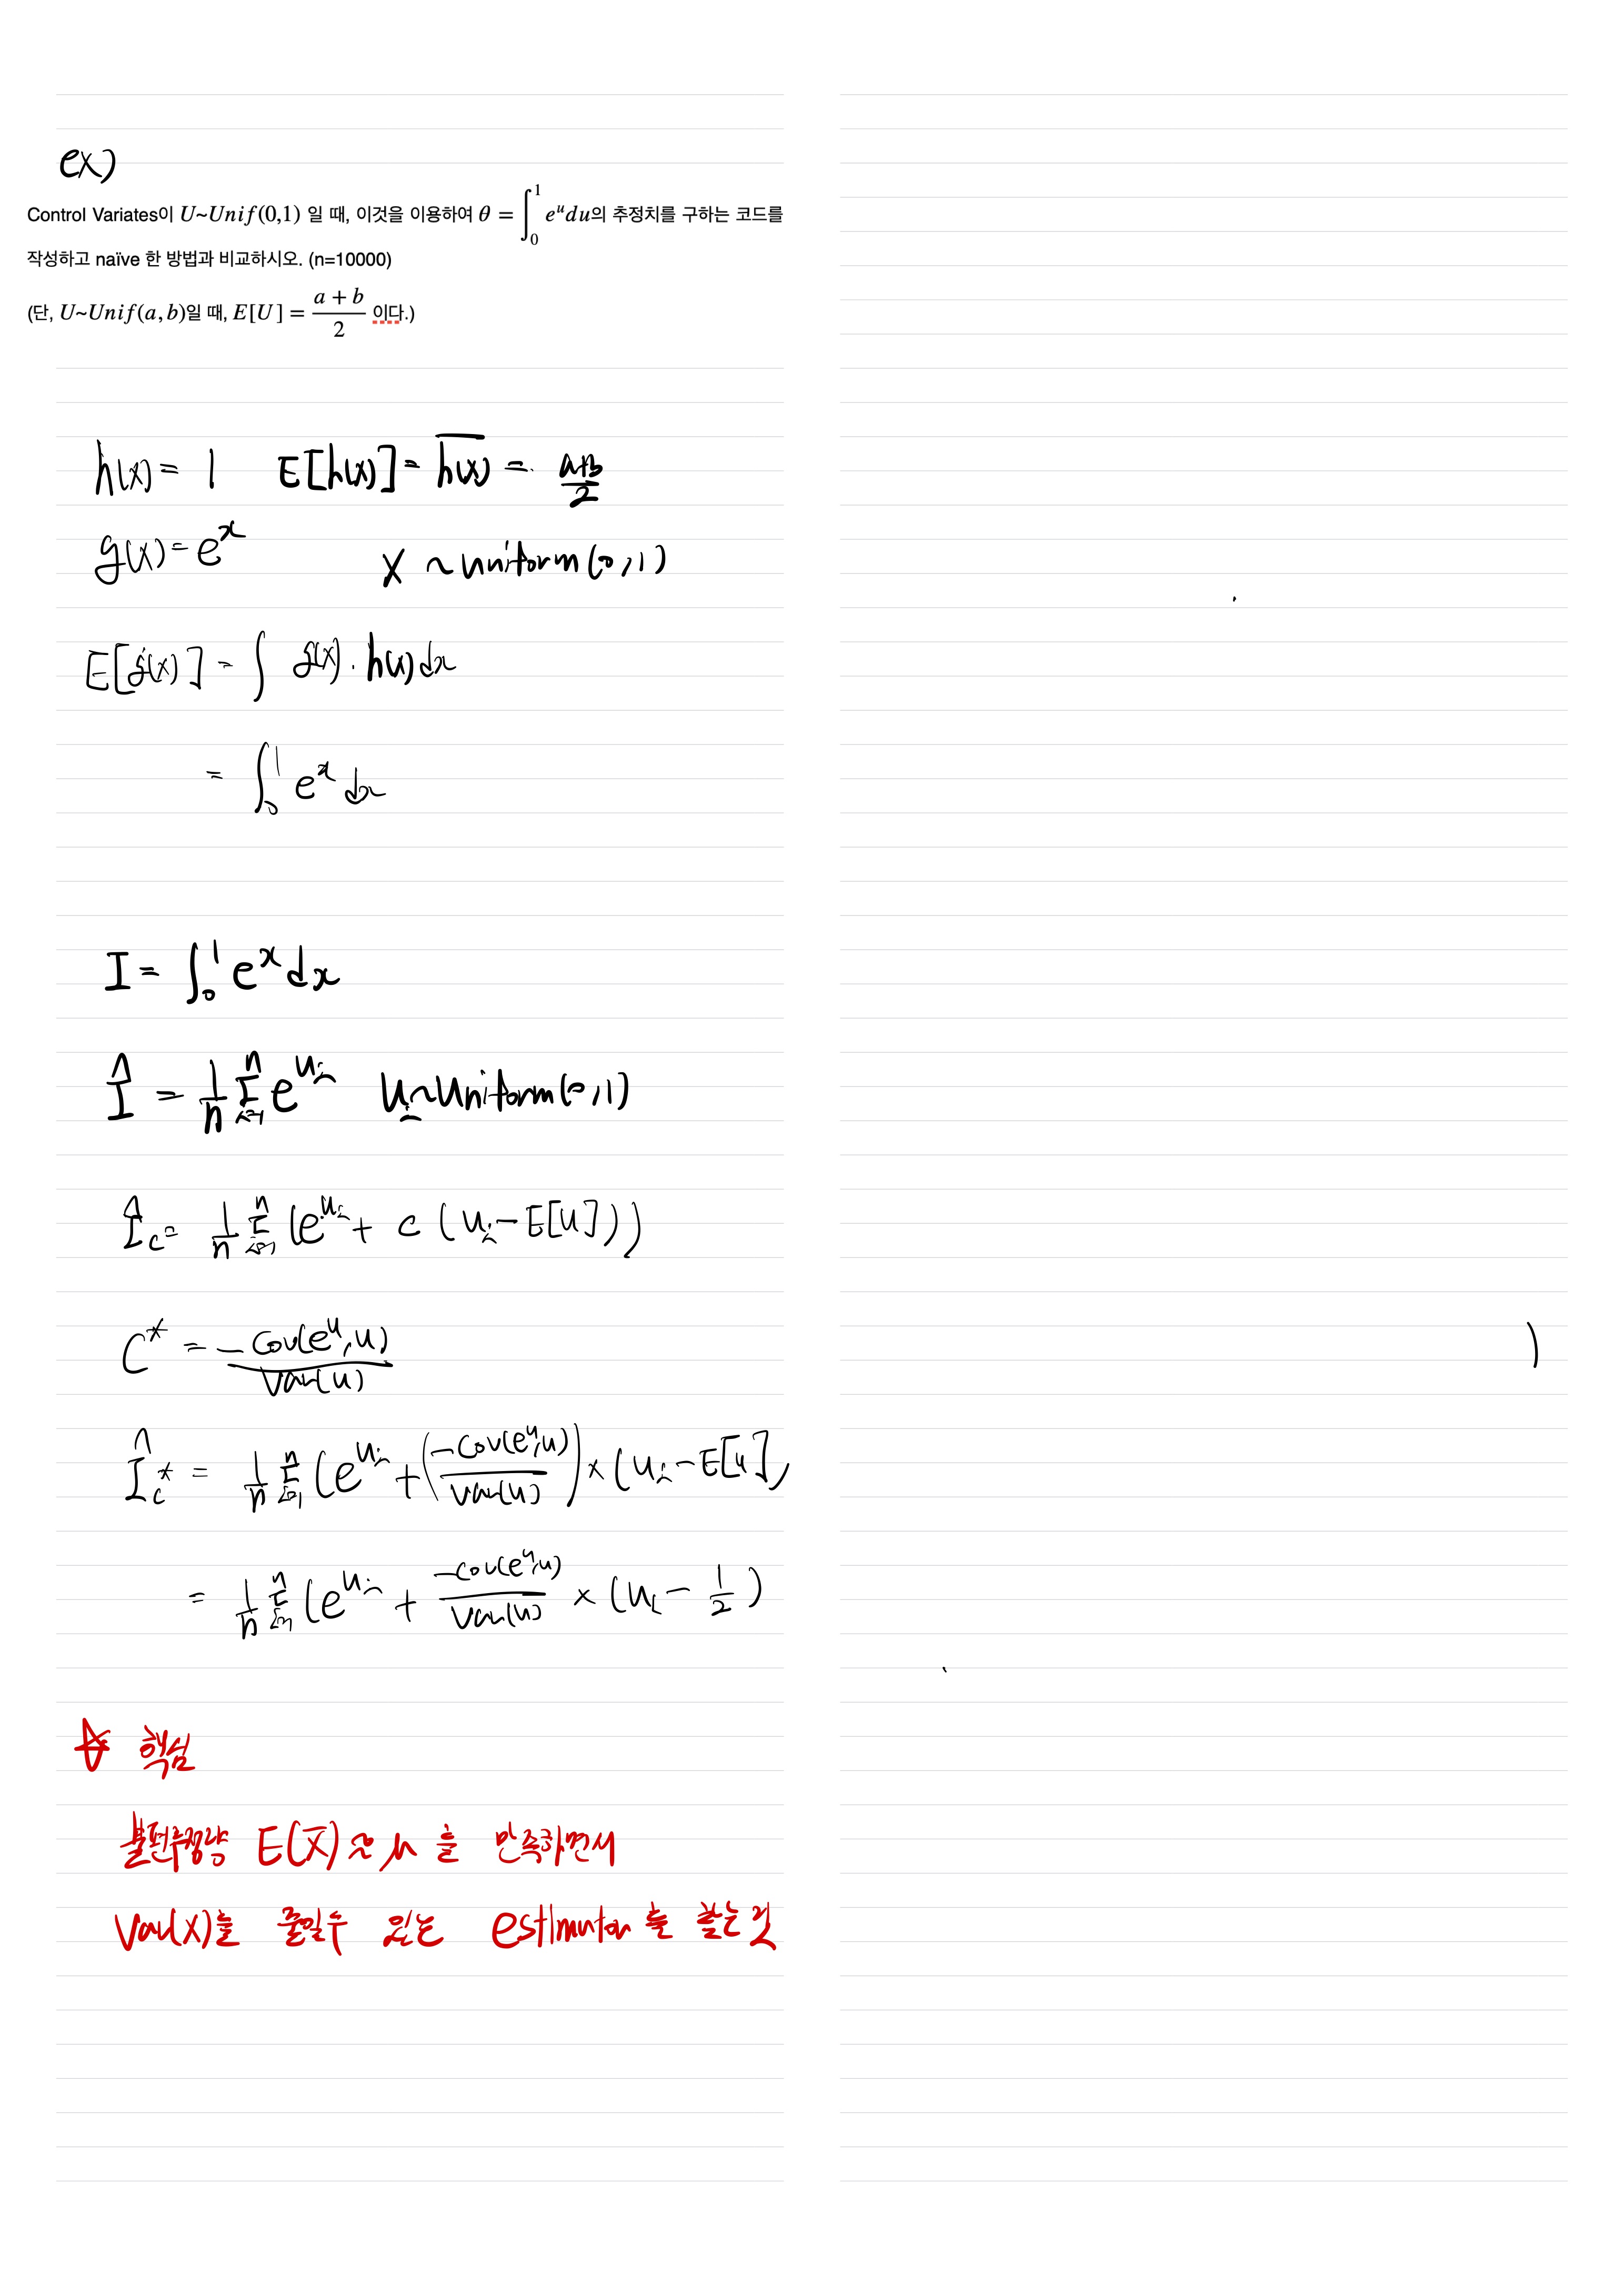 ex)
Control Variates이 U~Unif(0,1) 일 때, 이것을 이용하여 θ = ∫₀¹ eᵘdu의 추정치를 구하는 코드를
작성하고 naïve 한 방법과 비교하시오. (n=10000)
(단, U~Unif(a, b)일 때, E[U] = (a + b)/2 이다.)
h(x) = 1 E[h(x)] = \overline{h(x)} = (a+b)/2
g(x) = eˣ X ~ uniform(0,1)
E[g(x)] = ∫ g(x) · h(x) dx
= ∫₀¹ eˣ dx
I = ∫₀¹ eˣ dx
Î = 1/n Σ_{i=1}^{n} e^{u_i} u_i ~ uniform(0,1)
Î_c = 1/n Σ_{i=1}^{n} (e^{u_i} + c (u_i − E[u]))
C* = −Cov(eᵘ, u)/Var(u)
Î_c* = 1/n Σ_{i=1}^{n} (e^{u_i} + (−Cov(eᵘ, u)/Var(u)) × (u_i − E[u])
)
= 1/n Σ_{i=1}^{n} (e^{u_i} + −Cov(eᵘ, u)/Var(u) × (u_i − 1/2)
☆ 핵심
불편추정량 E(X̄) ≈ μ 를 만족하면서
Var(X)를 줄일수 있는 estimator를 찾는것